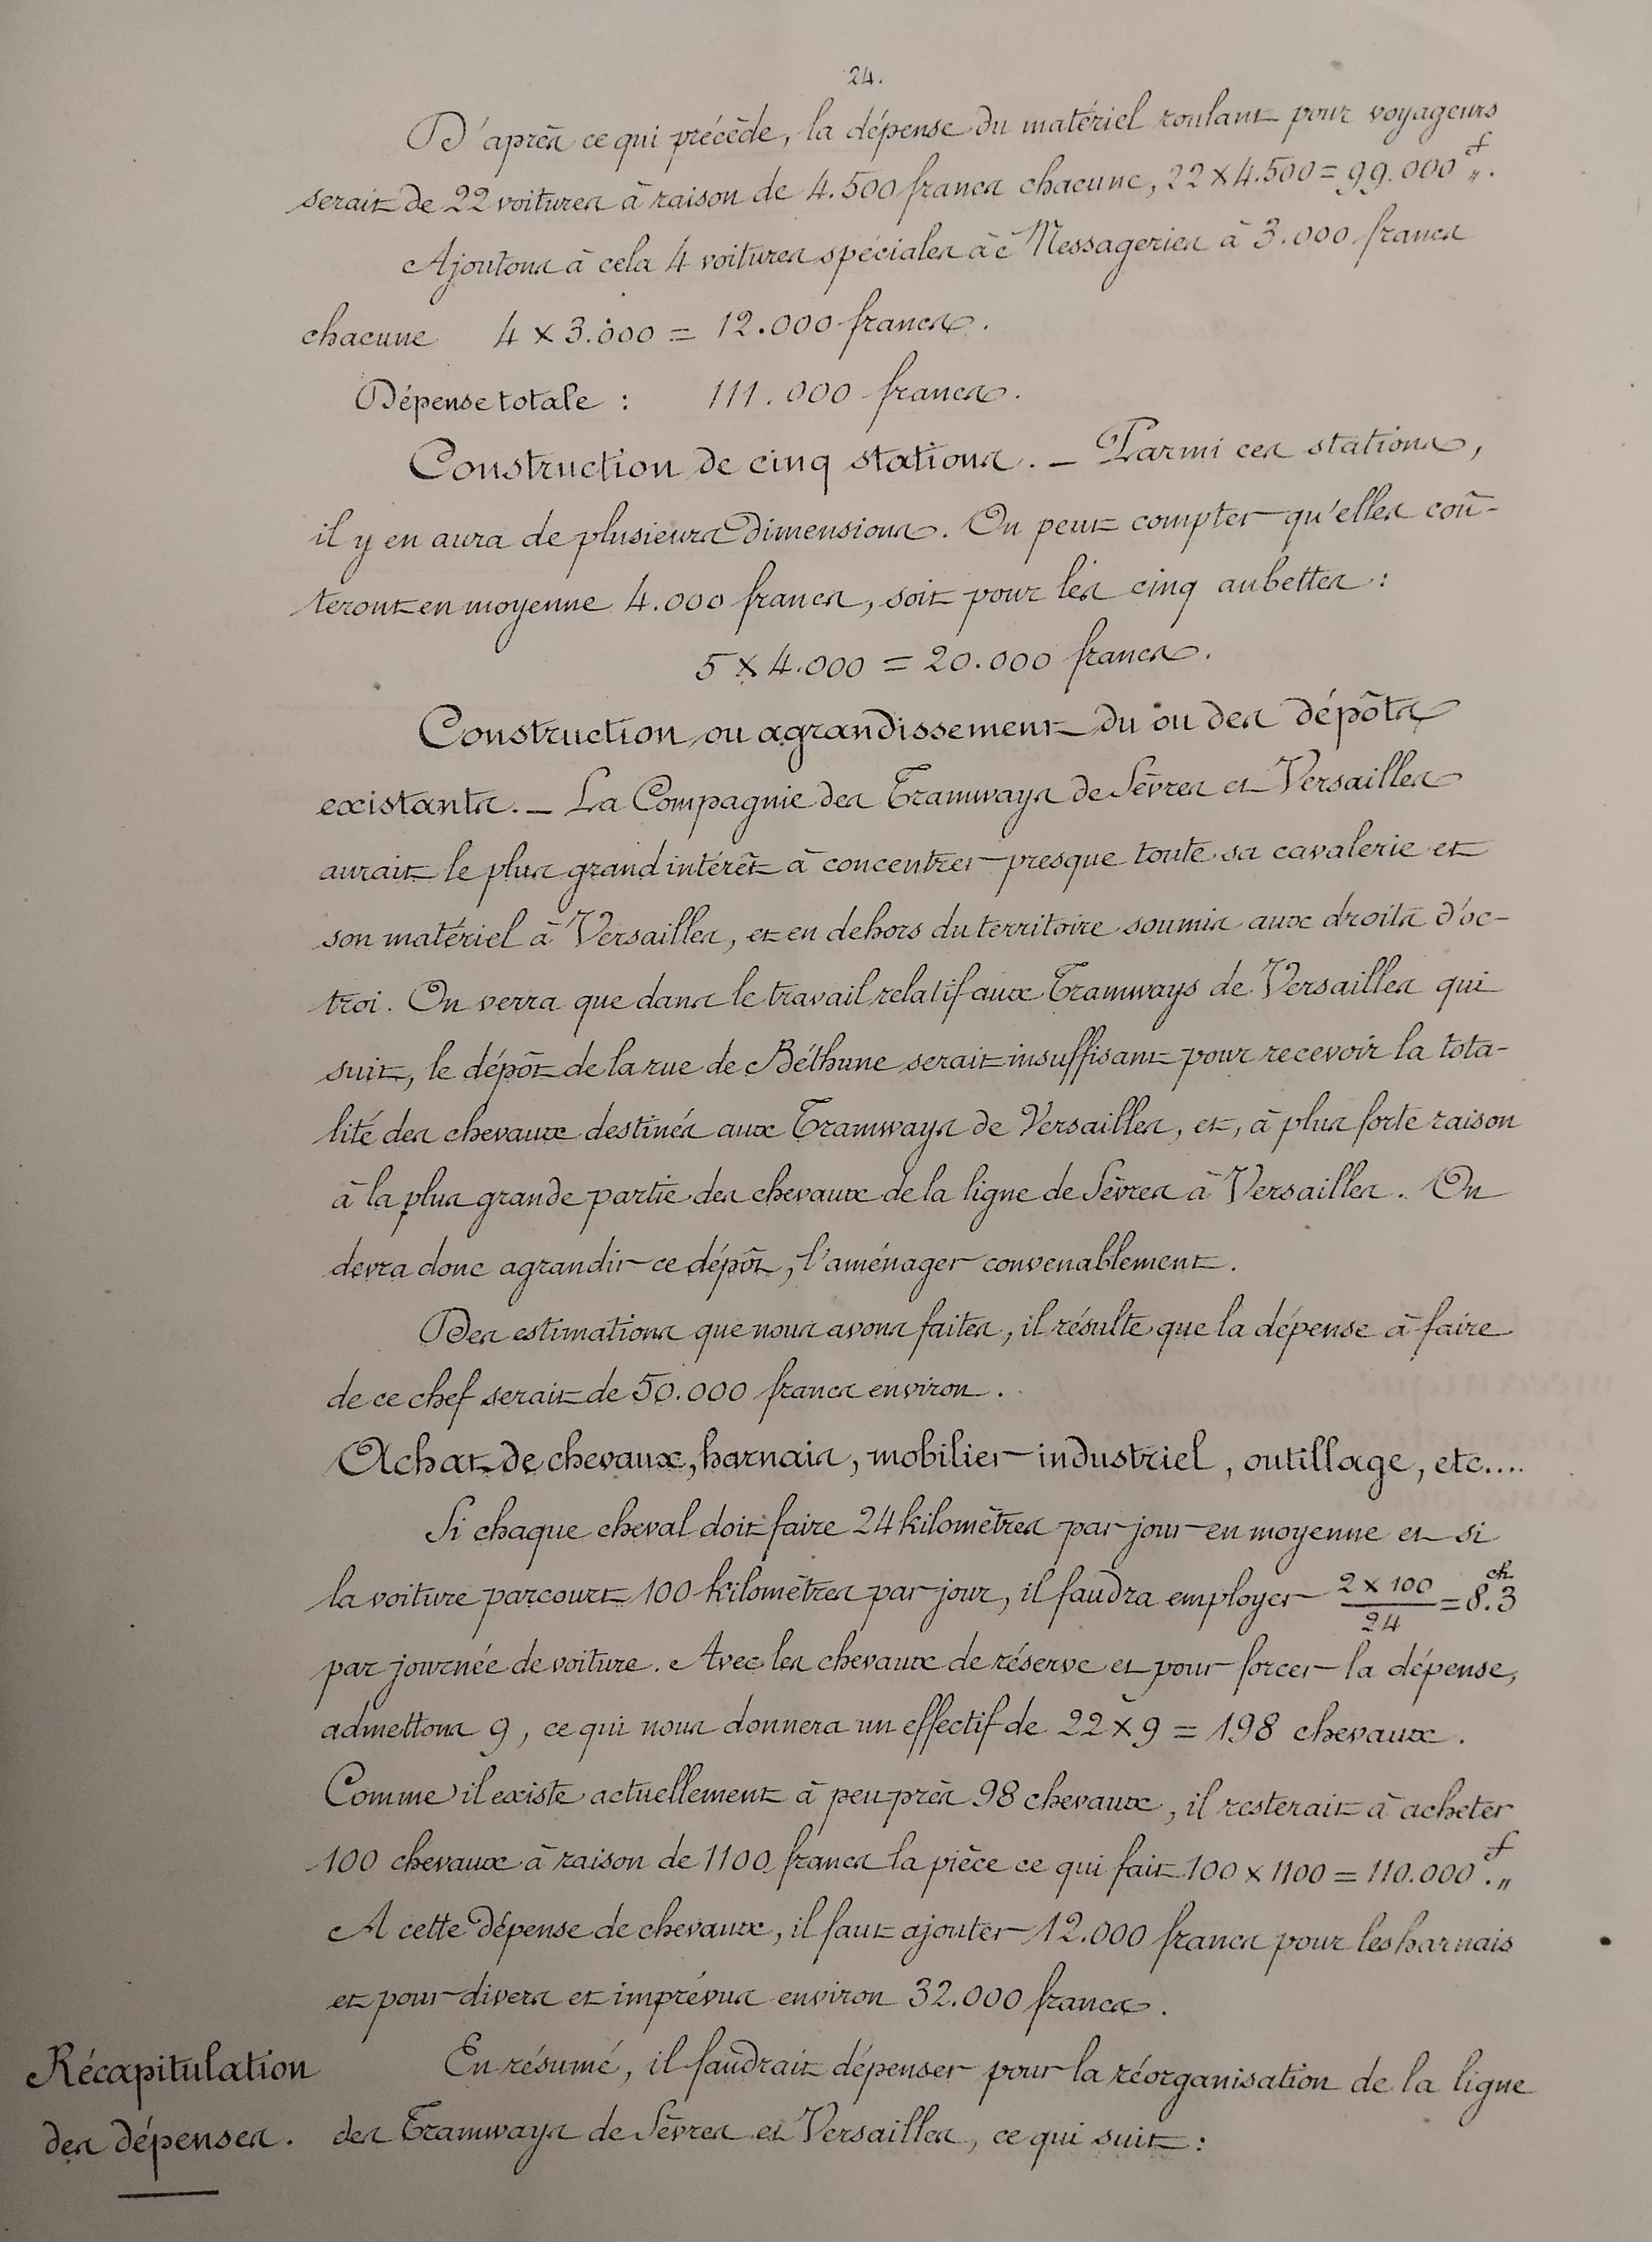 24.
D'après ce qui précède, la dépense du matériel roulant pour voyageurs
serait de 22 voitures à raison de 4.500 francs chacune, 22 × 4.500 = 99.000 f „.
Ajoutons à cela 4 voitures spéciales à Messageries à 3.000 francs
chacune 4 × 3.000 = 12.000 francs.
Dépense totale : 111.000 francs.
Construction de cinq stations. — Parmi ces stations,
il y en aura de plusieurs dimensions. On peut compter qu'elles coû-
teront en moyenne 4.000 francs, soit pour les cinq aubettes :
5 × 4.000 = 20.000 francs.
Construction ou agrandissement du ou des dépôts
existants. — La Compagnie des Tramways de Sèvres et Versailles
aurait le plus grand intérêt à concentrer presque toute sa cavalerie et
son matériel à Versailles, et en dehors du territoire soumis aux droits d'oc-
troi. On verra que dans le travail relatif aux Tramways de Versailles qui
suit, le dépôt de la rue de Béthune serait insuffisant pour recevoir la tota-
lité des chevaux destinés aux Tramways de Versailles, et, à plus forte raison
à la plus grande partie des chevaux de la ligne de Sèvres à Versailles. On
devra donc agrandir ce dépôt, l'aménager convenablement.
Des estimations que nous avons faites, il résulte que la dépense à faire
de ce chef serait de 50.000 francs environ.
Achat de chevaux, harnais, mobilier industriel, outillage, etc....
Si chaque cheval doit faire 24 kilomètres par jour en moyenne et si
la voiture parcourt 100 kilomètres par jour, il faudra employer 2 × 100 / 24 = 8.3 ch.
par journée de voiture. Avec les chevaux de réserve et pour forcer la dépense,
admettons 9, ce qui nous donnera un effectif de 22 × 9 = 198 chevaux.
Comme il existe actuellement à peu près 98 chevaux, il resterait à acheter
100 chevaux à raison de 1100 francs la pièce ce qui fait 100 × 1100 = 110.000 f. „
A cette dépense de chevaux, il faut ajouter 12.000 francs pour les harnais
et pour divers et imprévus environ 32.000 francs.
Récapitulation
des dépenses.
En résumé, il faudrait dépenser pour la réorganisation de la ligne
des Tramways de Sèvres et Versailles, ce qui suit :